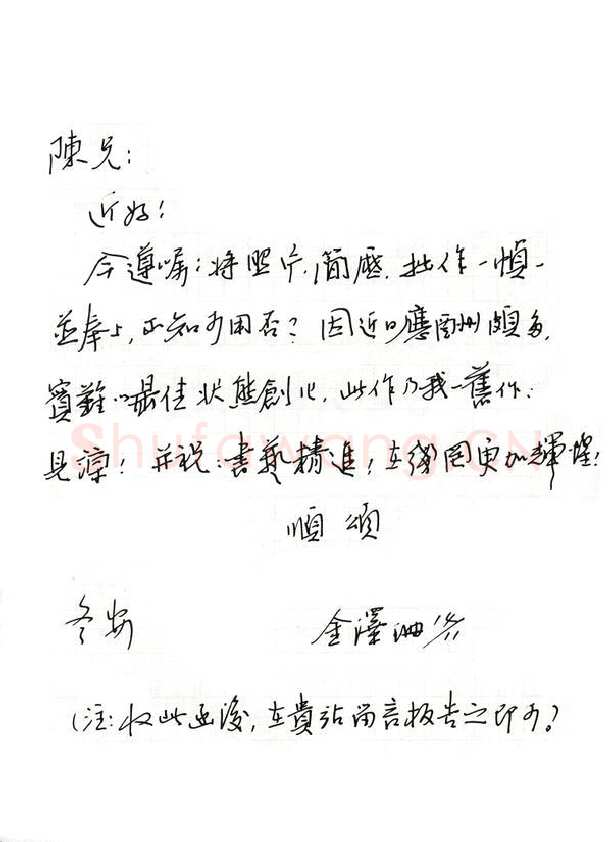 陳兄：
近好！
今遵嘱：将照片、简歷、拙作一幀一
並奉上，不知可用否？因近日應酬頗多，
實難以最佳状態創作，此作乃我一舊作：
見諒！并祝：書藝精進！在綫网更加輝煌！
順頌
冬安
金澤珊
（注：收此函後，在貴站留言板告之即可。）
Shufawang.CN